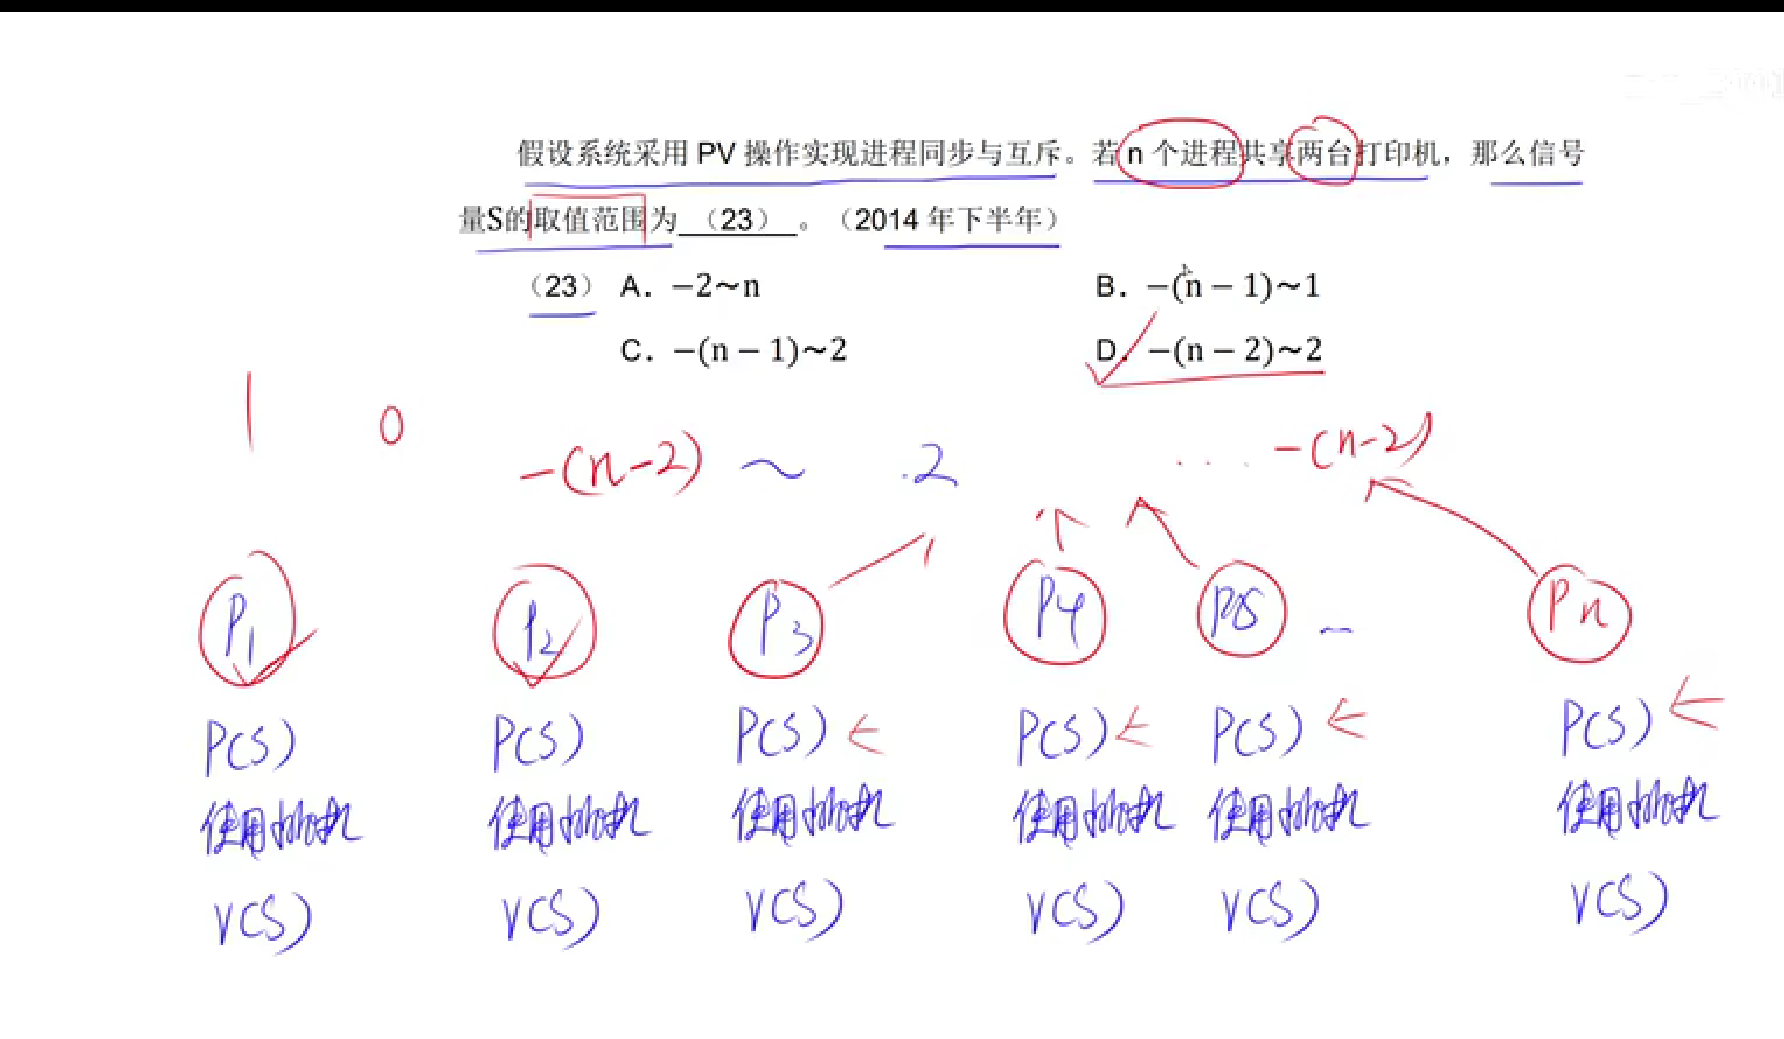 假设系统采用 PV 操作实现进程同步与互斥。若 n 个进程共享两台打印机，那么信号
量S的取值范围为 （23） 。（2014 年下半年）
（23） A. −2～n B. −(n − 1)～1
C. −(n − 1)～2 D. −(n − 2)～2
1 0
-(n-2) ～ 2 .... -(n-2)
P1 P2 P3 P4 P5 - Pn
P(S) P(S) P(S) P(S) P(S) P(S)
使用 使用 使用 使用 使用 使用
V(S) V(S) V(S) V(S) V(S) V(S)